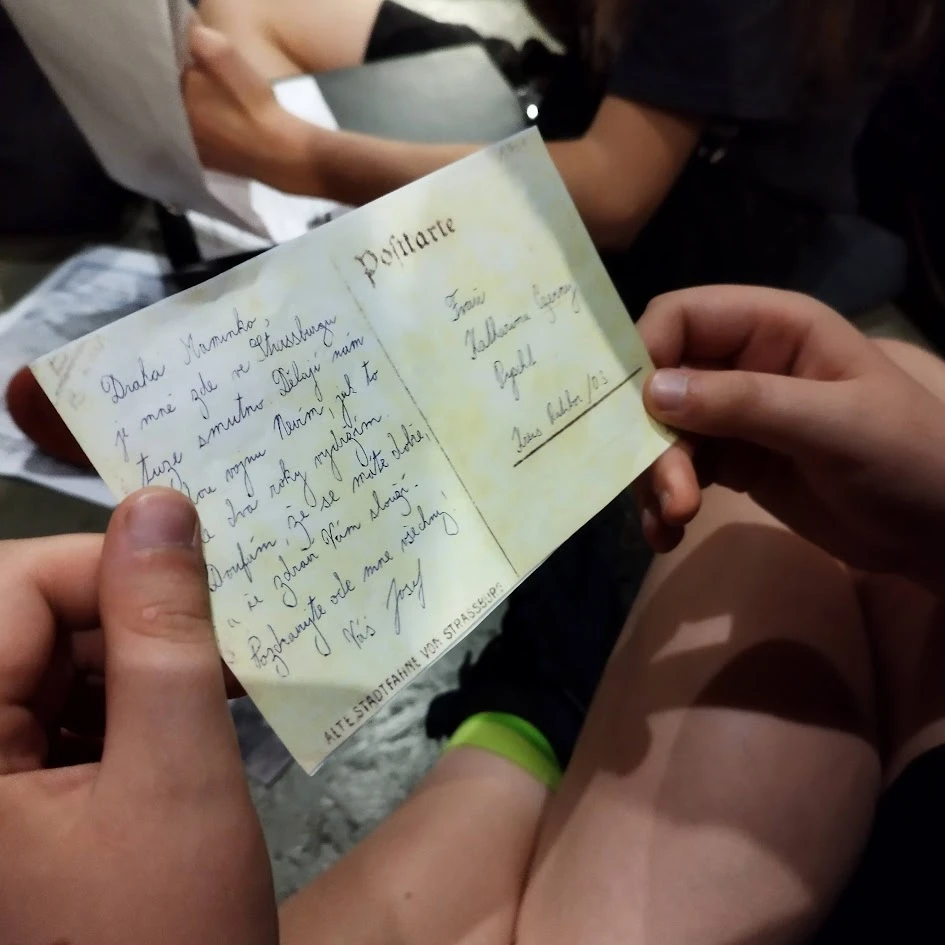 Drahá Maminko,
je mně zde ve Strassburgu
tuze smutno. Dělají nám
vojnu. Nevím, jak to
dva roky vydržím.
Doufám, že se máte dobře,
a že zdraví Vám slouží.
Pozdravujte ode mne všechny!
Váš Josef
ALTE STADTFAHNE VON STRASSBURG
Postkarte
Frau
Katharina Czerny
Kreis Ratibor/OS